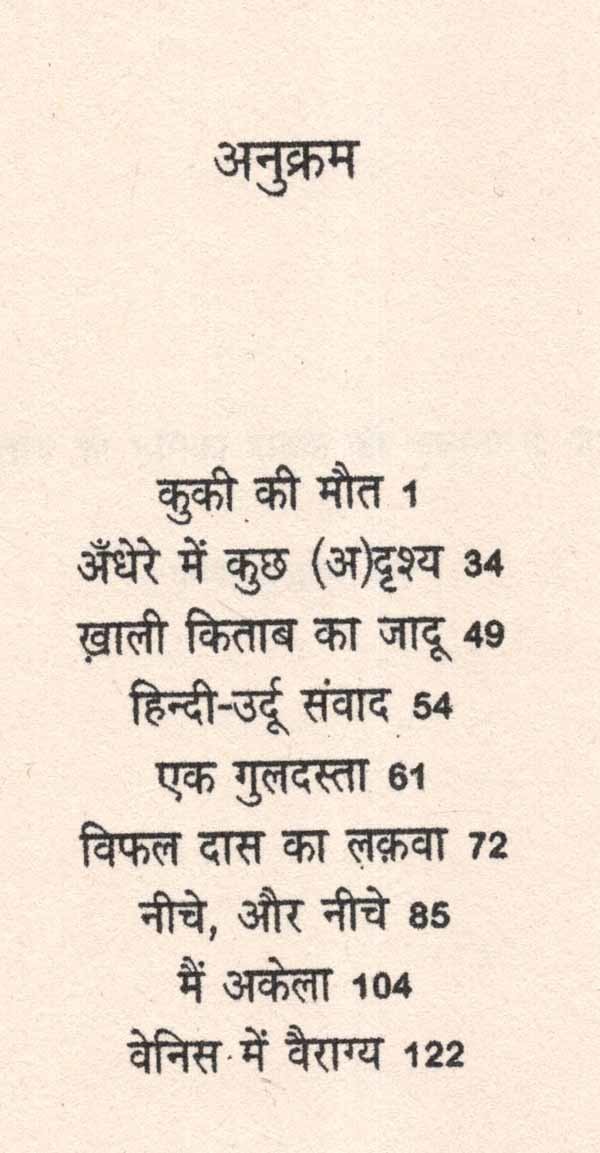 अनुक्रम
कुकी की मौत 1
अँधेरे में कुछ (अ)दृश्य 34
ख़ाली किताब का जादू 49
हिन्दी-उर्दू संवाद 54
एक गुलदस्ता 61
विफल दास का लक़वा 72
नीचे, और नीचे 85
मैं अकेला 104
वेनिस में वैराग्य 122